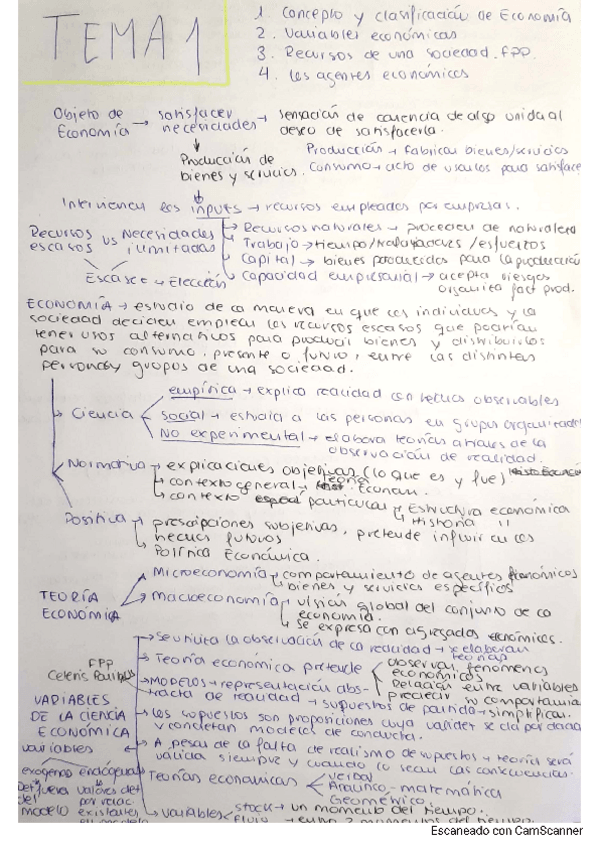 TEMA 1
1. Concepto y clasificación de Economía
2. Variables económicas
3. Recursos de una sociedad. FPP.
4. Los agentes económicos
Objeto de Economía → satisfacer necesidades → sensación de carencia de algo unida al deseo de satisfacerla.
Producción de bienes y servicios.
Producción → fabricar bienes/servicios
Consumo → acto de usarlos para satisface
Intervienen los inputs → recursos empleados por empresas.
Recursos escasos vs Necesidades ilimitadas
Escasez → Elección
Recursos naturales → proceden de naturaleza
Trabajo → tiempo/trabajadores/esfuerzos
Capital → bienes producidos para la producción
Capacidad empresarial → acepta riesgos
organiza fact prod.
ECONOMÍA → estudio de la manera en que los individuos y la
sociedad deciden emplear los recursos escasos que podrían
tener usos alternativos para producir bienes y distribuirlos
para su consumo, presente o futuro, entre las distintas
personas y grupos de una sociedad.
Ciencia
empírica → explica realidad con hechos observables
social → estudia a las personas en grupos organizado
No experimental → elabora teorías a través de la
observación de realidad.
Normativa → explicaciones objetivas (lo que es y fue)
contexto general → Teoría Econom.
contexto particular → Estructura económica
Historia "
Positiva → prescripciones subjetivas, pretende influir en los
hechos futuros
Política Económica.
TEORÍA ECONÓMICA
Microeconomía → comportamiento de agentes económicos
bienes y servicios específicos
Macroeconomía → visión global del conjunto de la
economía.
Se expresa con agregados económicos.
FPP
Ceteris Paribus
VARIABLES
DE LA CIENCIA
ECONÓMICA
variables
exógenas endógenas
Det fuera valores det
del por relac.
modelo existentes
en modelo
Se limita la observación de la realidad → se elaboran
teorías
Teoría económica pretende
observar fenómenos
económicos
Relación entre variables
predecir su comportamie
MODELOS → representación abs-
tracta de realidad → supuestos de partida → simplifican.
Los supuestos son proposiciones cuya validez se da por dada
y concretan modelos de conducta.
A pesar de la falta de realismo de supuestos → teoría será
válida siempre y cuando lo sean las consecuencias.
Teorías económicas
verbal
Analítico-matemática
Geométrico
variables
stock → un momento del tiempo.
flujo → entre 2 momentos del tiempo.
Escaneado con CamScanner